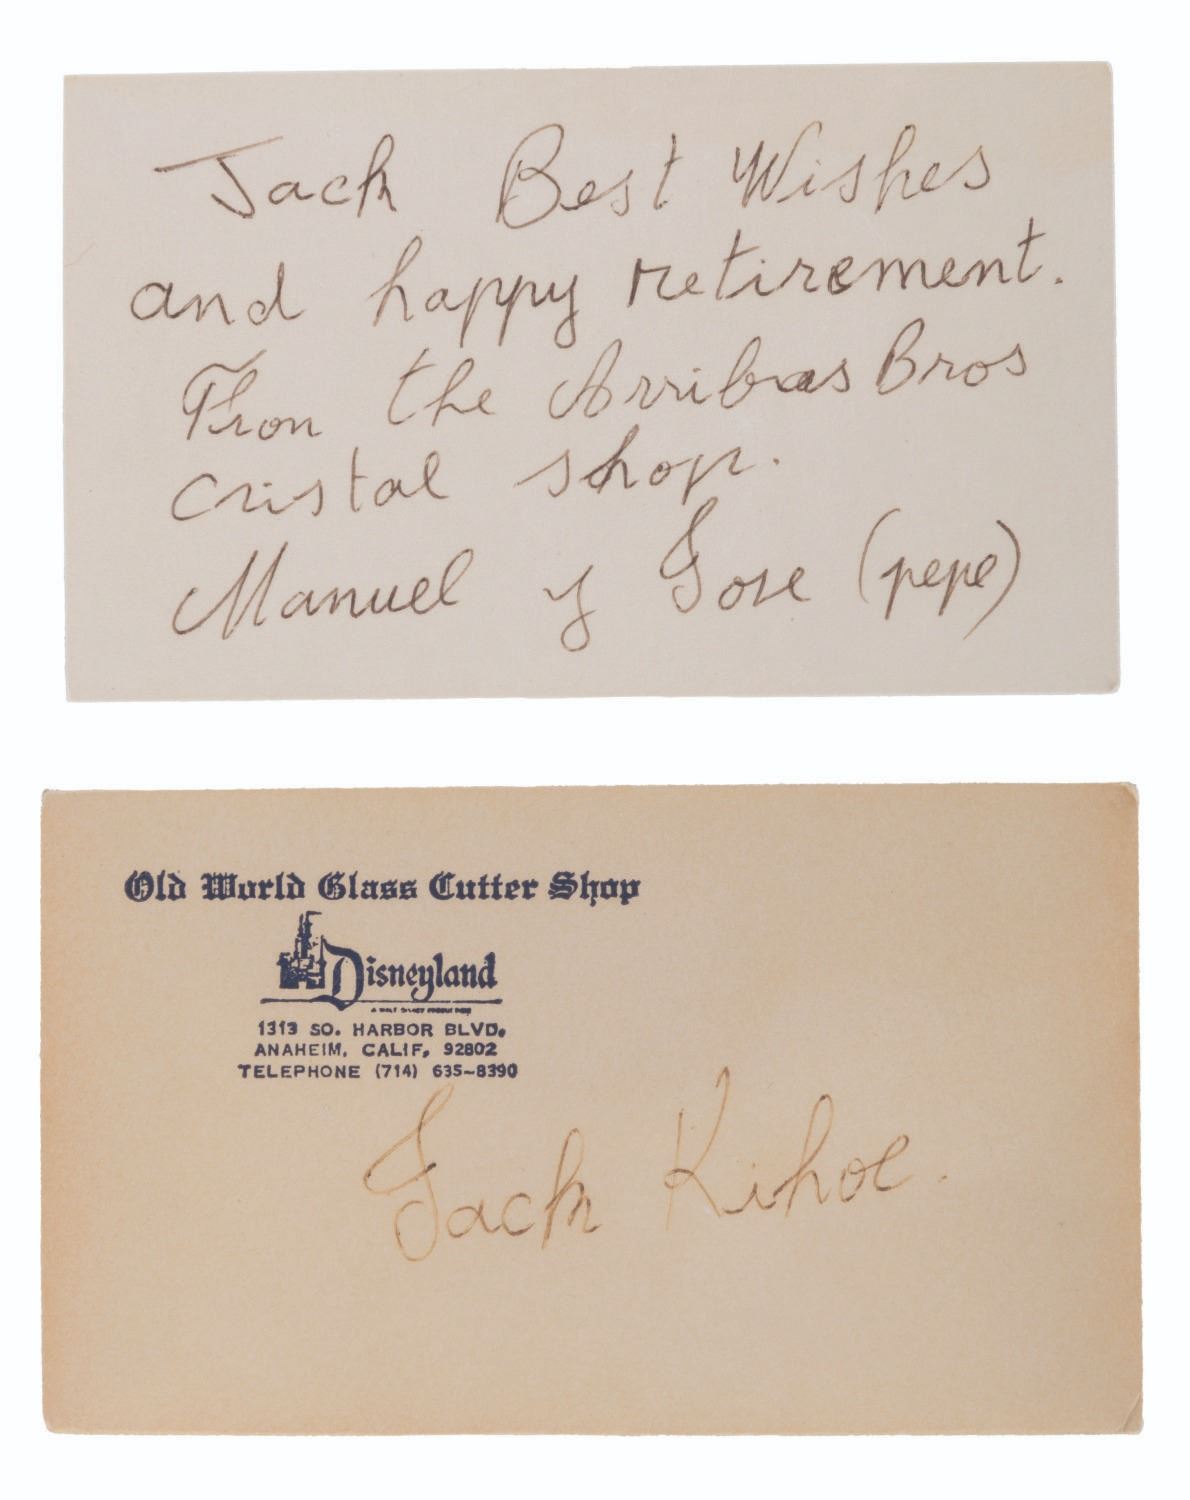 Jack Best Wishes
and happy retirement.
Fron the Arribas Bros
cristal shop.
Manuel y Jose (pepe)
Old World Glass Cutter Shop
Disneyland
1313 SO. HARBOR BLVD.
ANAHEIM, CALIF, 92802
TELEPHONE (714) 635-8390
Jack Kihoe.